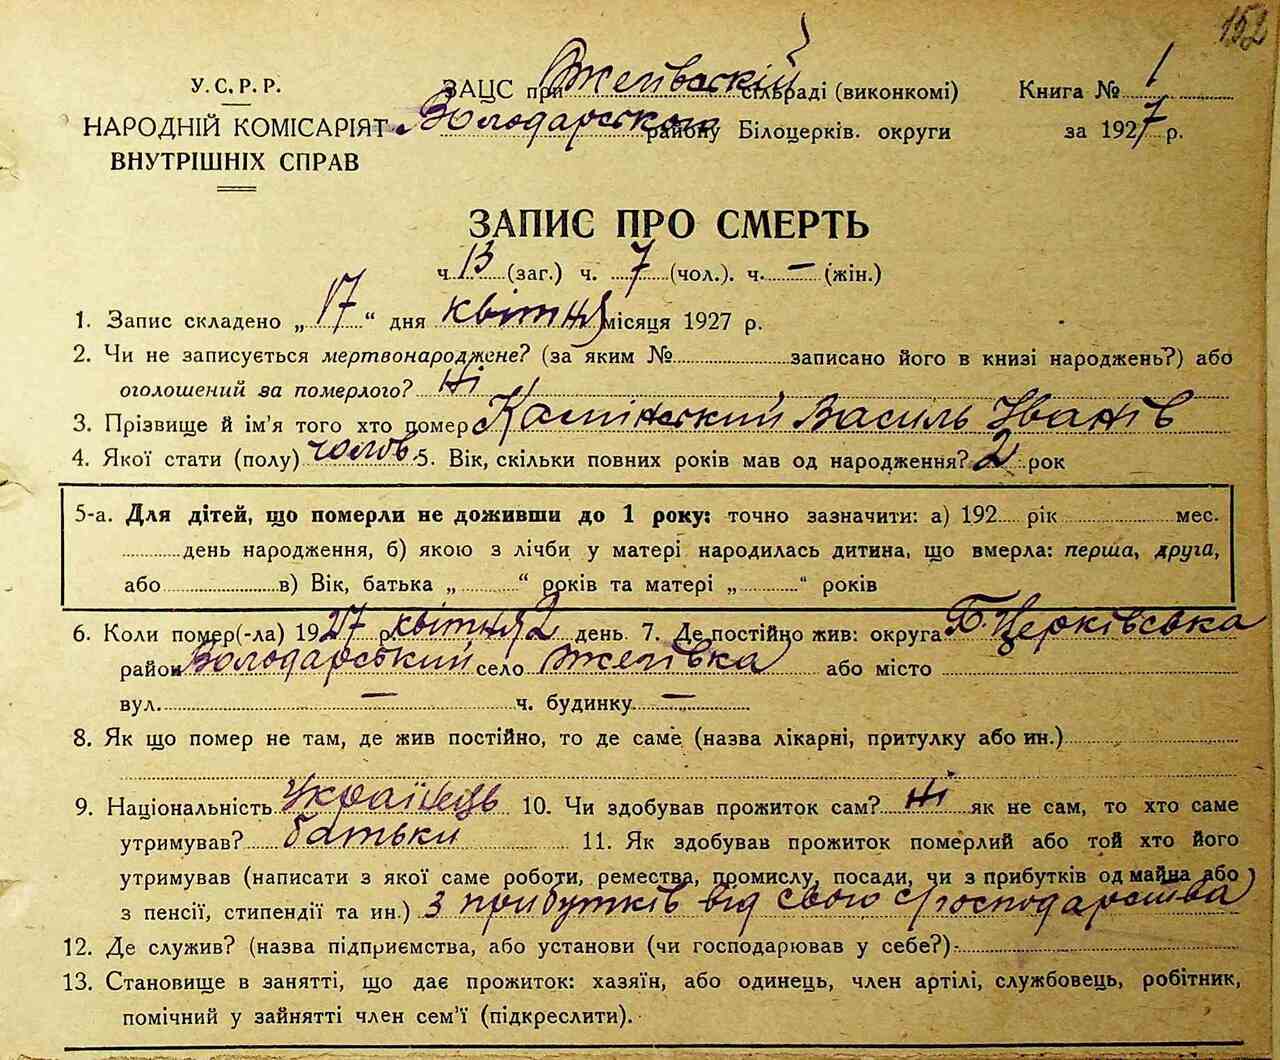 152
У.С.Р.Р.
НАРОДНІЙ КОМІСАРІЯТ
ВНУТРІШНІХ СПРАВ
ЗАЦС при сільраді (виконкомі)
Володарського району Білоцерків. округи
Книга № 1
за 1927 р.
ЗАПИС ПРО СМЕРТЬ
ч. 13 (заг.) ч. 7 (чол.). ч. — (жін.)
1. Запис складено „17“ дня квітня місяця 1927 р.
2. Чи не записується мертвонароджене? (за яким № записано його в книзі народжень?) або
оголошений за померлого? Ні
3. Прізвище й ім'я того хто помер Камінський Василь Іванів
4. Якої стати (полу) чолов. 5. Вік, скільки повних років мав од народження? 2 рок
5-а. Для дітей, що померли не доживши до 1 року: точно зазначити: а) 192 рік мес.
день народження, б) якою з лічби у матері народилась дитина, що вмерла: перша, друга,
або в) Вік, батька „ “ років та матері „ “ років
6. Коли помер(-ла) 1927 р. квітня 2 день. 7. Де постійно жив: округа Б. Церківська
район Володарський село або місто
вул. — ч. будинку —
8. Як що помер не там, де жив постійно, то де саме (назва лікарні, притулку або ин.)
9. Національність Українець 10. Чи здобував прожиток сам? Ні як не сам, то хто саме
утримував? батьки 11. Як здобував прожиток померлий або той хто його
утримував (написати з якої саме роботи, ремества, промислу, посади, чи з прибутків од майна або
з пенсії, стипендії та ин.) З прибутків від свого с/господарства
12. Де служив? (назва підприємства, або установи (чи господарював у себе?)
13. Становище в занятті, що дає прожиток: хазяїн, або одинець, член артілі, службовець, робітник,
помічний у зайнятті член сем'ї (підкреслити).